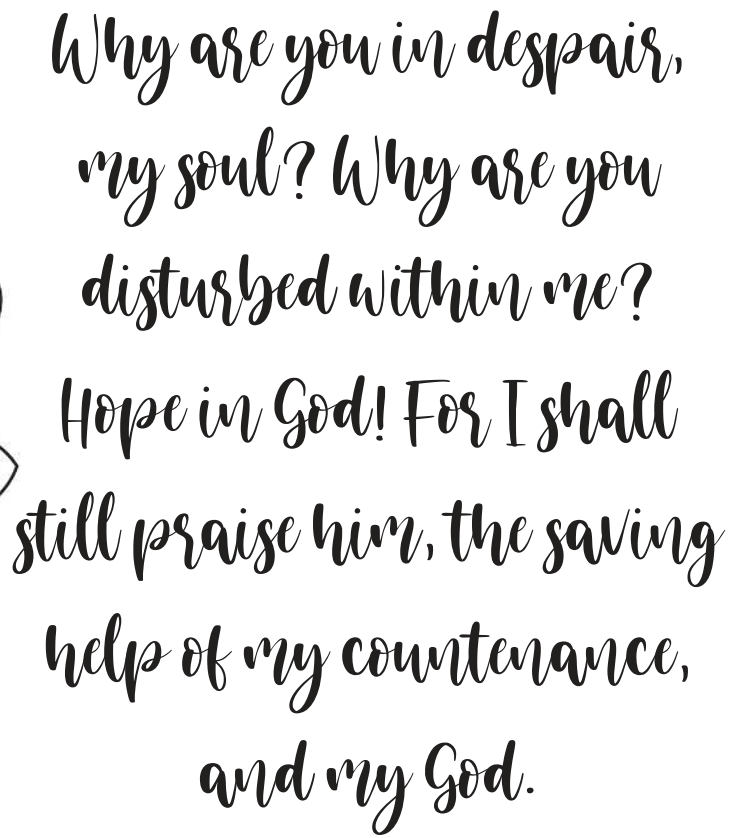 Why are you in despair,
my soul? Why are you
disturbed within me?
Hope in God! For I shall
still praise him, the saving
help of my countenance,
and my God.